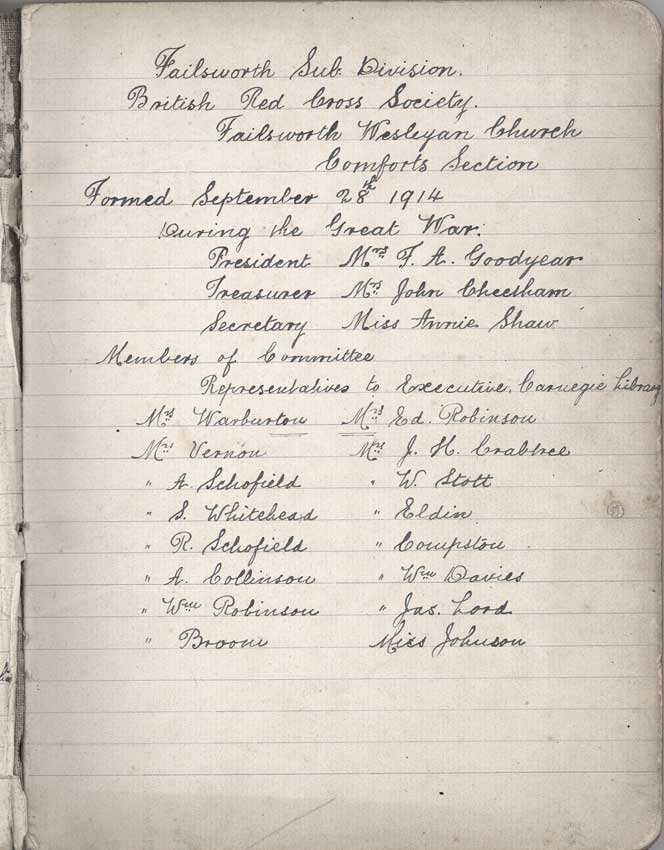 Failsworth Sub. Division.
British Red Cross Society.
Failsworth Wesleyan Church
Comforts Section
Formed September 28th 1914
During the Great War.
President Mrs F. A. Goodyear
Treasurer Mrs John Cheetham
Secretary Miss Annie Shaw
Members of Committee
Representatives to Executive, Carnegie Library
Mrs Warburton Mrs Ed. Robinson
Mrs Vernon Mrs J. H. Crabtree
" A. Schofield " W. Stott
" S. Whitehead " Eldin
" R. Schofield " Compston
" A. Collinson " Wm Davies
" Wm Robinson " Jas. Lord
" Broom Miss Johnson